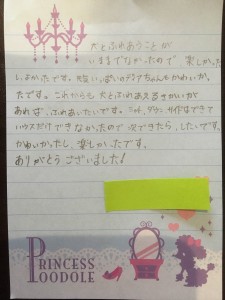 犬とふれあうことが
いままでなかったので 楽しかった
しよかったです。犬もいっぱいいてちゃんもかわいか
たです。これからも犬とふれあえるきかいが
あれば、ふれあいたいです。ダウン
ハウスだけできなかったので次できたら、したいです。
かわいかったし、楽しかったです。
ありがとうございました!
PRINCESS
POODOLE